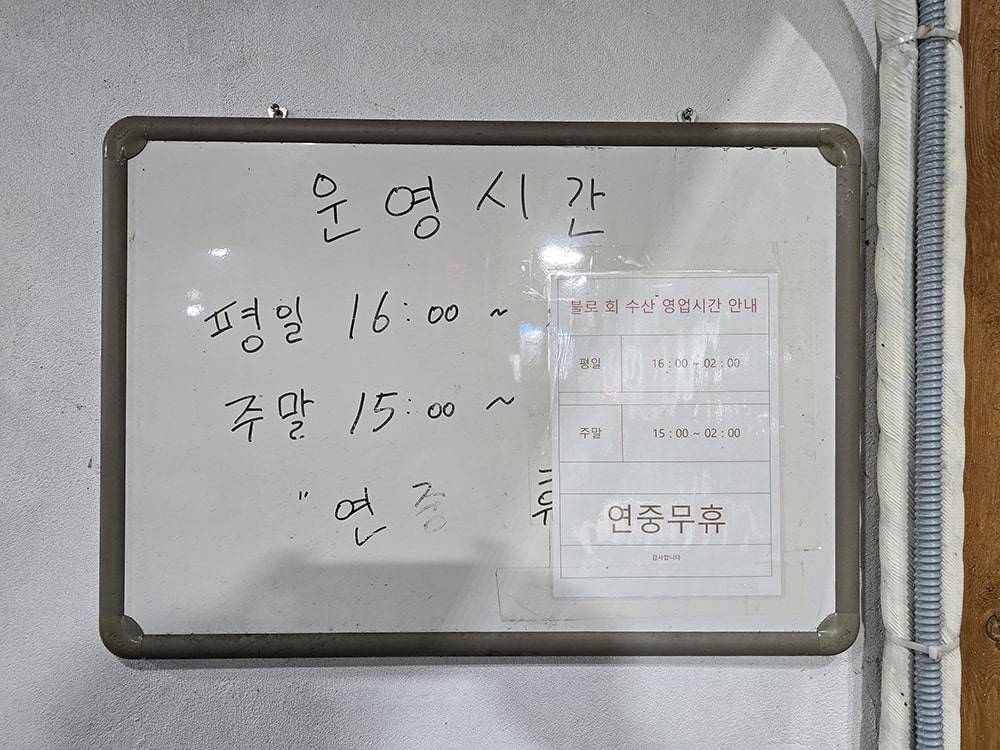 운영시간
평일 16:00 ~
주말 15:00 ~
"연중 휴
불로 회 수산 영업시간 안내
평일 16 : 00 ~ 02 : 00
주말 15 : 00 ~ 02 : 00
연중무휴
감사합니다